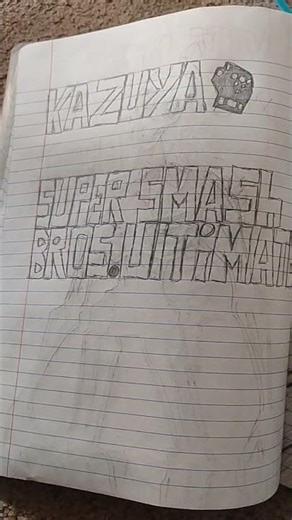 KAZUYA
SUPER SMASH
BROS. ULTiMATE